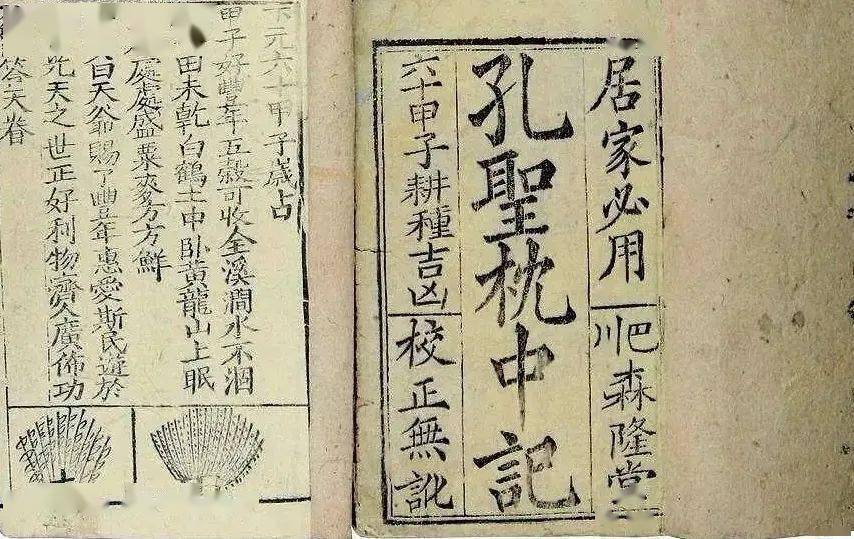 居家必用
巴川森隆堂
孔聖枕中記
六十甲子耕種吉凶
校正無訛
下元六十甲子歲占
甲子好豐年五穀可收全溪澗水不涸
田未乾白鶴土中臥黃龍山上眠
處處盛粟麥方方鮮
白天爺賜了豐年惠愛斯民遊於
光天之世正好利物濟人廣佈功
答天眷